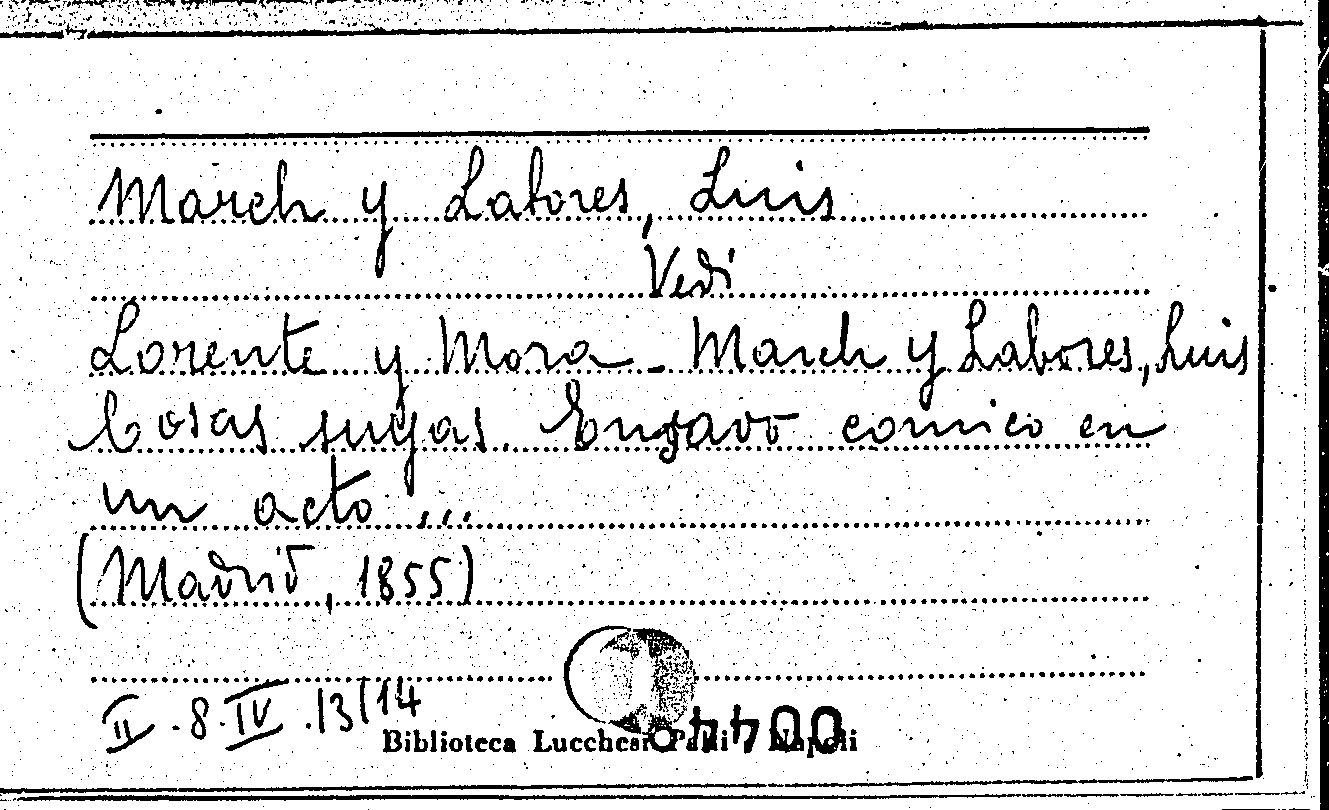 March y Labores, Luis
Vedi
Lorente y Mora - March y Labores, Luis
Cosas suyas. Ensavo comico en
un acto ...
(Madrid, 1855)
II . 8 . IV . 13/14
Biblioteca Lucchesi Palli Napoli